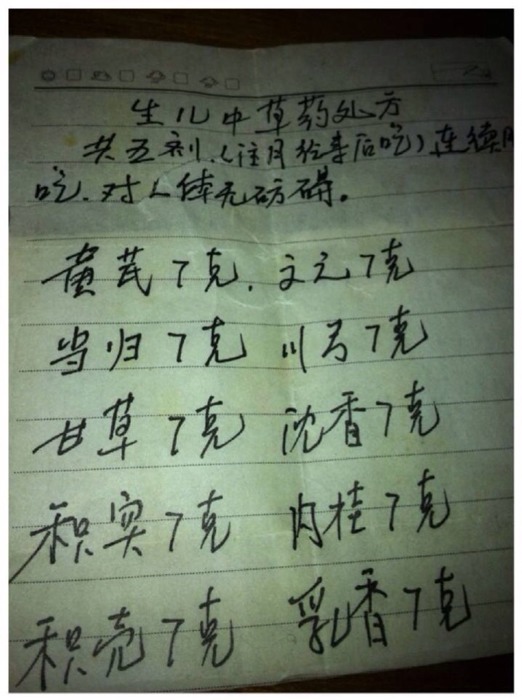 生儿中草药处方
共五剂.(注月经来后吃)连续
吃.对人体无防碍。
黄芪7克.文元7克
当归7克 川弓7克
甘草7克 沈香7克
积实7克 肉桂7克
积壳7克 乳香7克